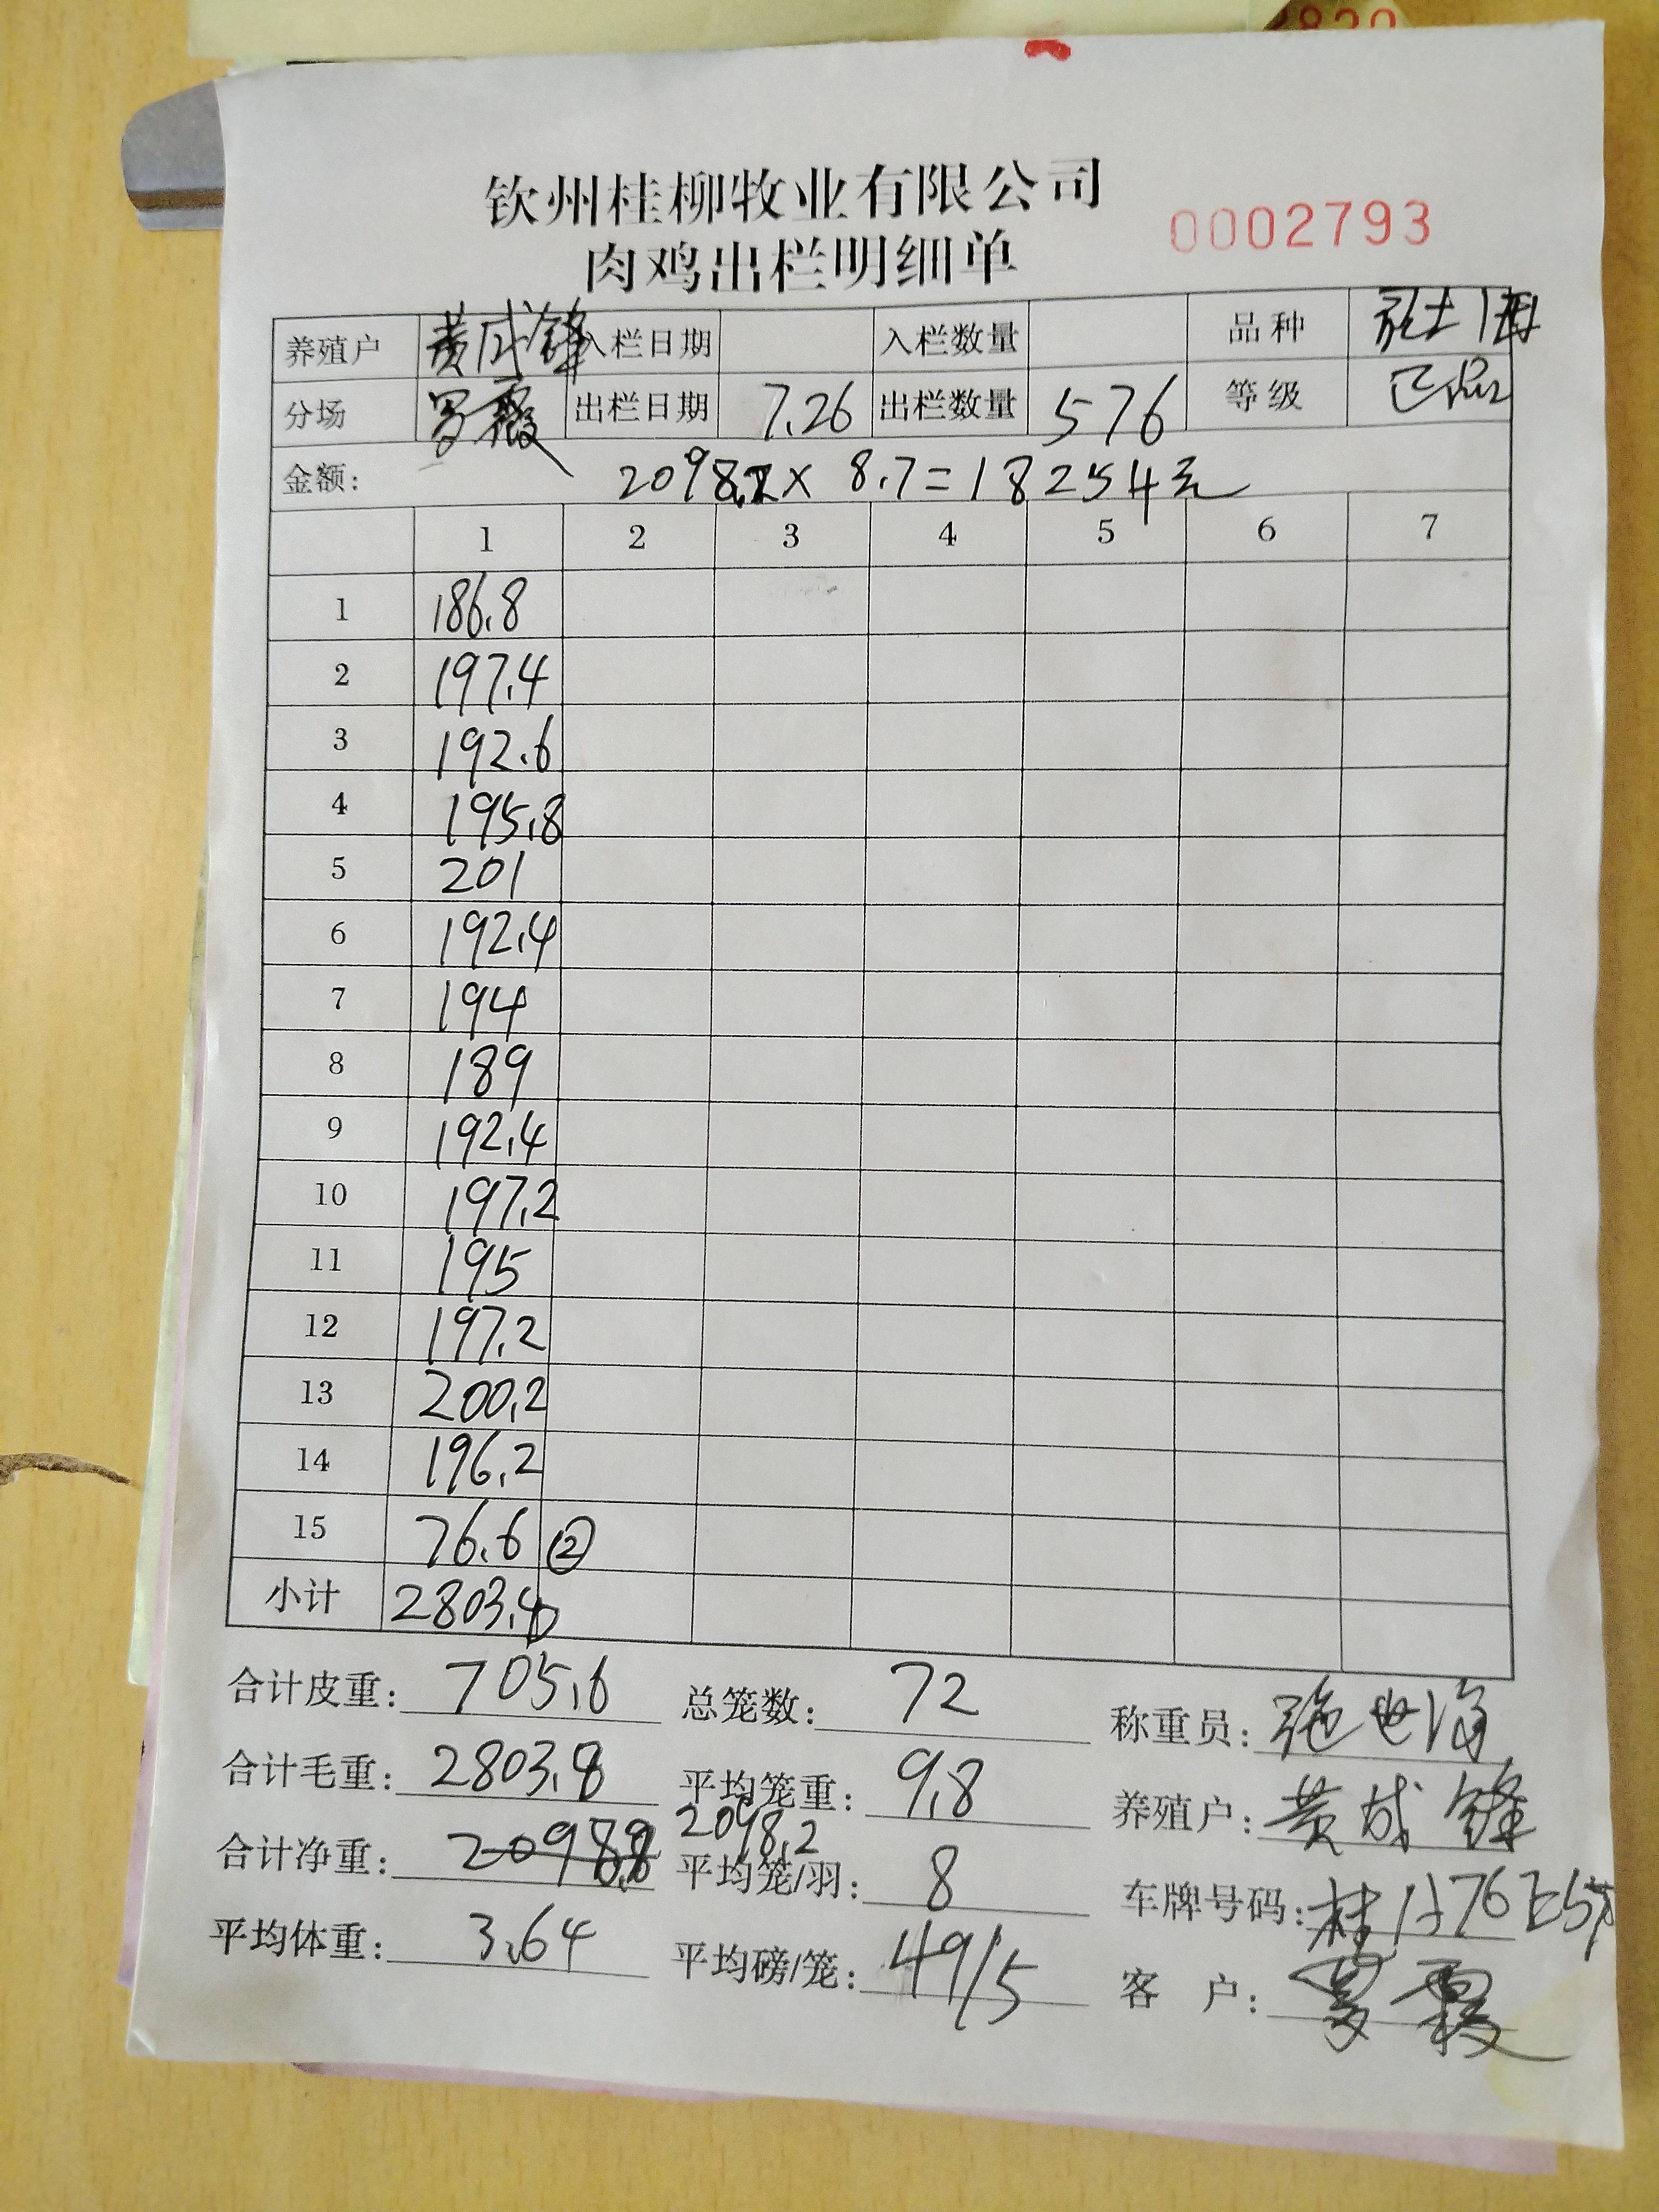 钦州桂柳牧业有限公司
肉鸡出栏明细单
0002793
养殖户 黄成锋 入栏日期 入栏数量 品种
分场 罗霞 出栏日期 7.26 出栏数量 576 等级
金额: 2098.2×8.7=18254元
1 2 3 4 5 6 7
1 186.8
2 197.4
3 192.6
4 195.8
5 201
6 192.4
7 194
8 189
9 192.4
10 197.2
11 195
12 197.2
13 200.2
14 196.2
15 76.6 ②
小计 2803.8
合计皮重: 705.6 总笼数: 72 称重员:
合计毛重: 2803.8 平均笼重: 9.8 养殖户: 黄成锋
2098.2
合计净重: 平均笼/羽: 8 车牌号码:
平均体重: 3.64 平均磅/笼: 49/5 客 户: 罗霞